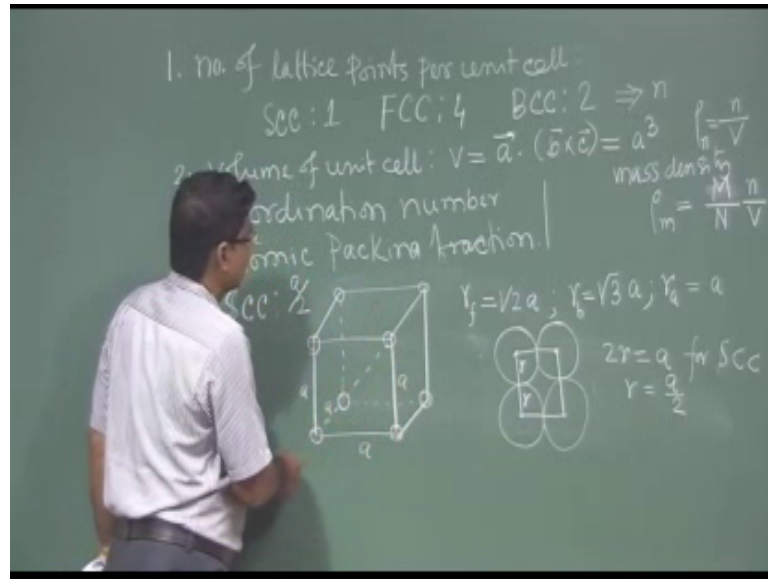 1. no. of lattice points per unit cell:
SCC: 1 FCC: 4 BCC: 2 ⇒ n
2. Volume of unit cell: V = a⃗ · (b⃗ × c⃗) = a³
ρₙ = n/V
mass density
ρₘ = M/N n/V
ordination number
omic Packing fraction.
SCC: a/2
r_f = √2 a ; r_b = √3 a ; r_a = a
a
a
a
a
r
r
2r = a for SCC
r = a/2